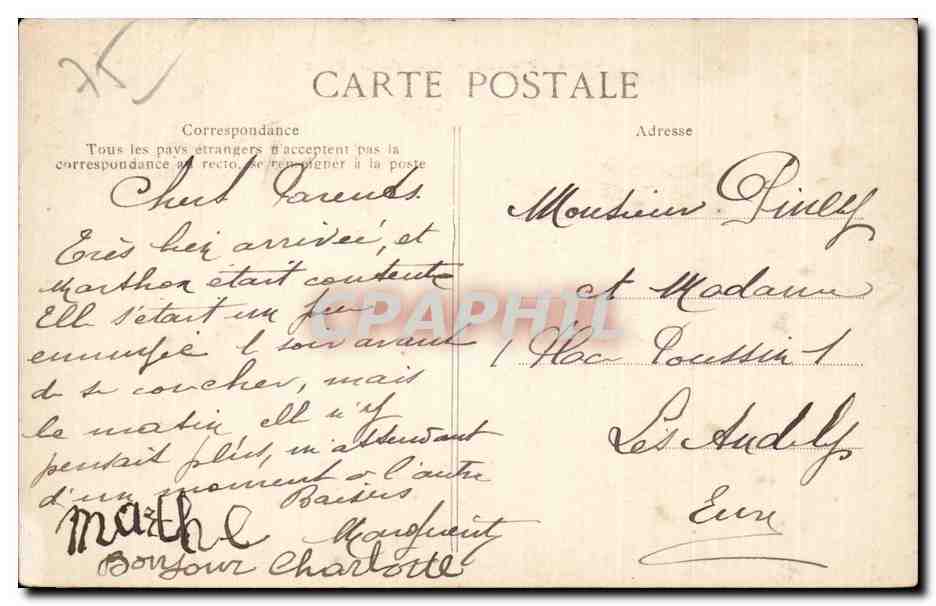 75
CARTE POSTALE
Correspondance
Tous les pays étrangers n'acceptent pas la
correspondance au recto, se renseigner à la poste
Adresse
Chers Parents.
Très bien arrivée, et
Marthon était contente
Elle s'était un peu
ennuyée le soir avant
de se coucher, mais
le matin elle n'y
pensait plus, m'attendant
d'un moment à l'autre
Baisers
Marguerite
Marthe
Bonjour Charlotte
Monsieur Piney
et Madame
1 Place Poussin 1
Les Andelys
Eure
CPAPHIL